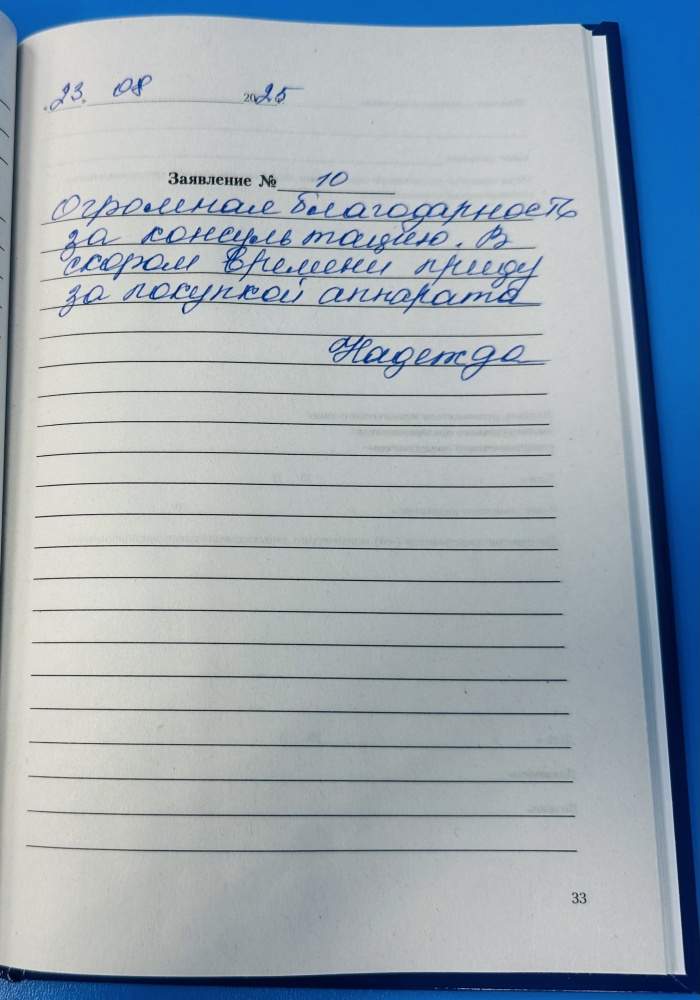 23. 08 2025
Заявление № 10
Огромная благодарность
за консультацию. В
скором времени приду
за покупкой аппарата
Надежда
33